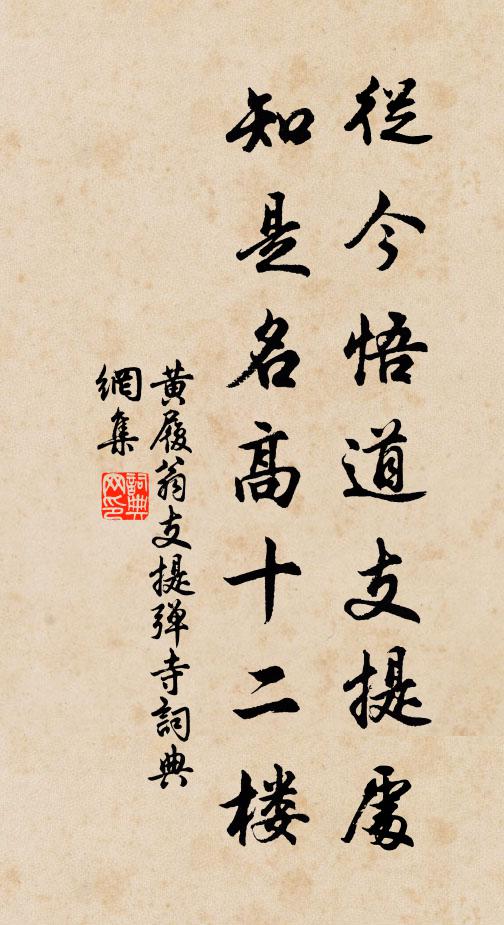 從今悟道支提處
知是名高十二楼
黄履翁支提弹寺詞典
網集
詞典
网印